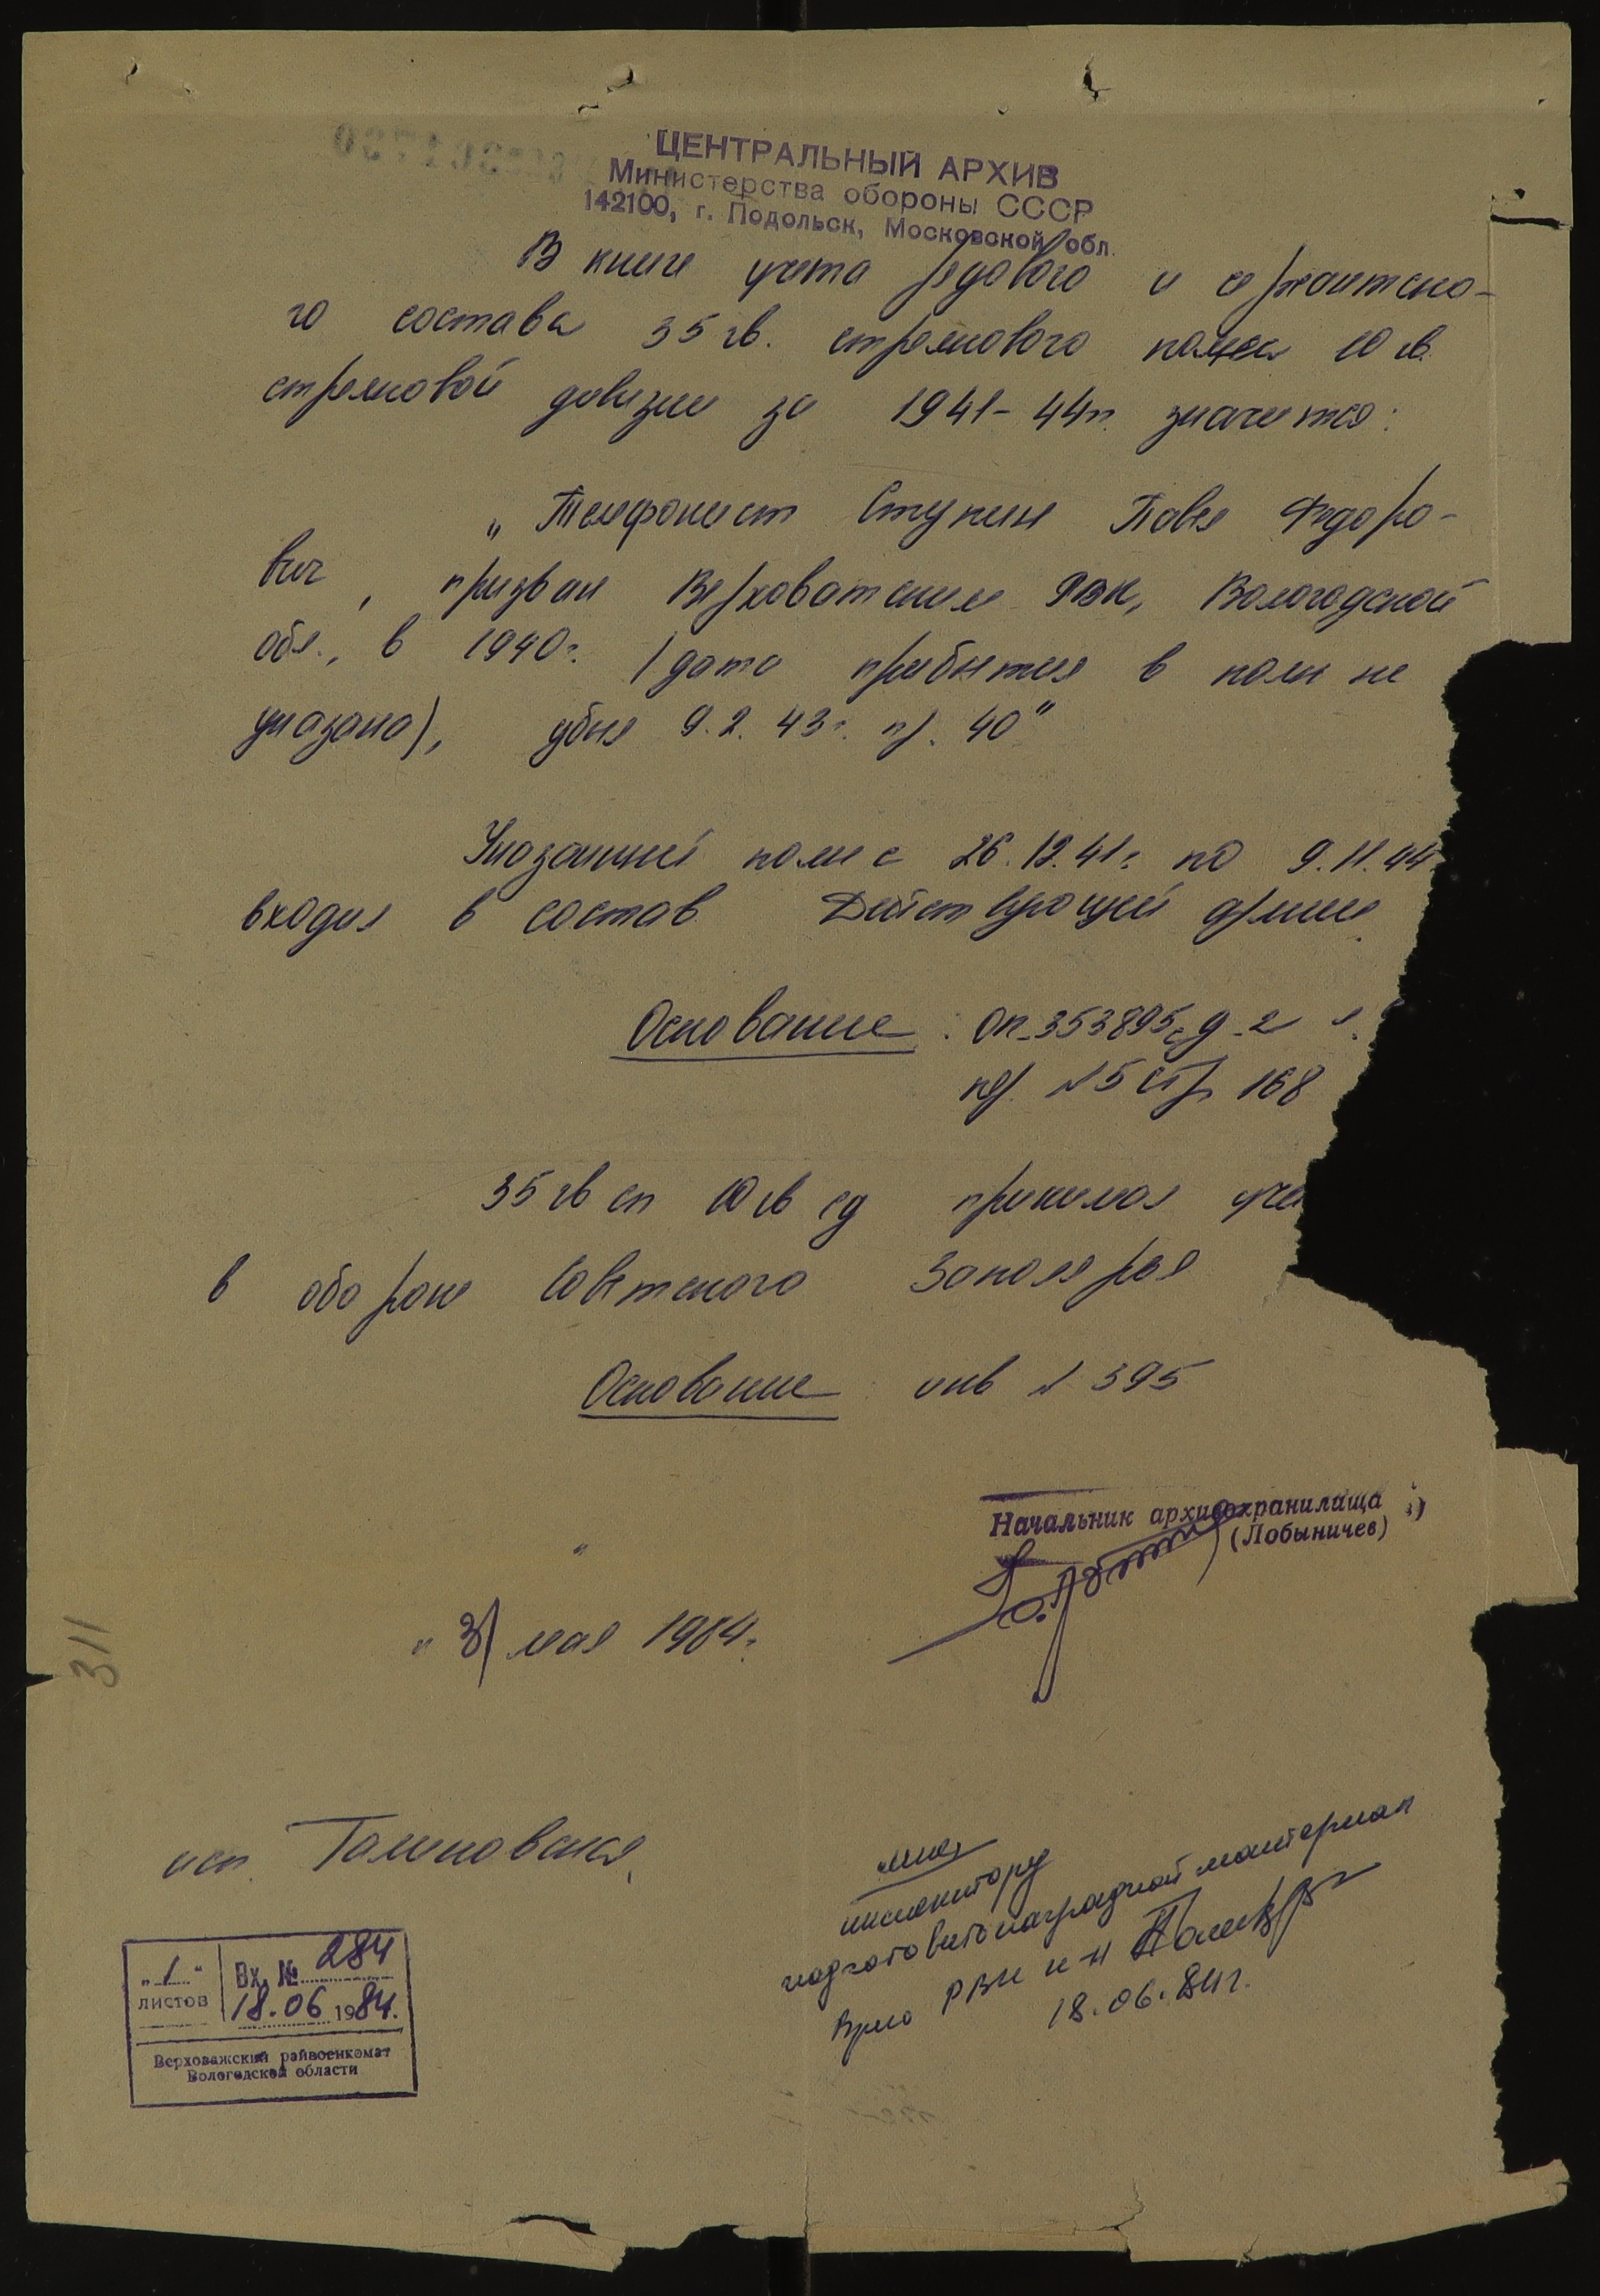 ЦЕНТРАЛЬНЫЙ АРХИВ
Министерства обороны СССР
142100, г. Подольск, Московской обл.
В книге учета рядового и сержантско-
го состава 35 гв. стрелкового полка 10 гв.
стрелковой дивизии за 1941-44гг. значится:
„Телефонист Ступин Павел Федоро-
вич, призван Верховажским РВК, Вологодской
обл., в 1940г. (дата прибытия в полк не
указана), убит 9.2.43г. пр. 40"
Указанный полк с 26.12.41г. по 9.11.44
входил в состав Действующей армии.
Основание: Оп. 353895с, д. 2
пор. №5 стр 168
35 гв сп 10 гв сд принимал уча
в обороне Советского Заполярья
Основание инв № 395
Начальник архивохранилища
(Лобыничев)
„31 мая 1984г.
311
исп. Галиновская
инспектору
подготовить наградной материал
Врио РВК к-н
18.06.84г.
„1" листов
Вх. № 284
18.06 1984.
Верховажский райвоенкомат
Вологодской области